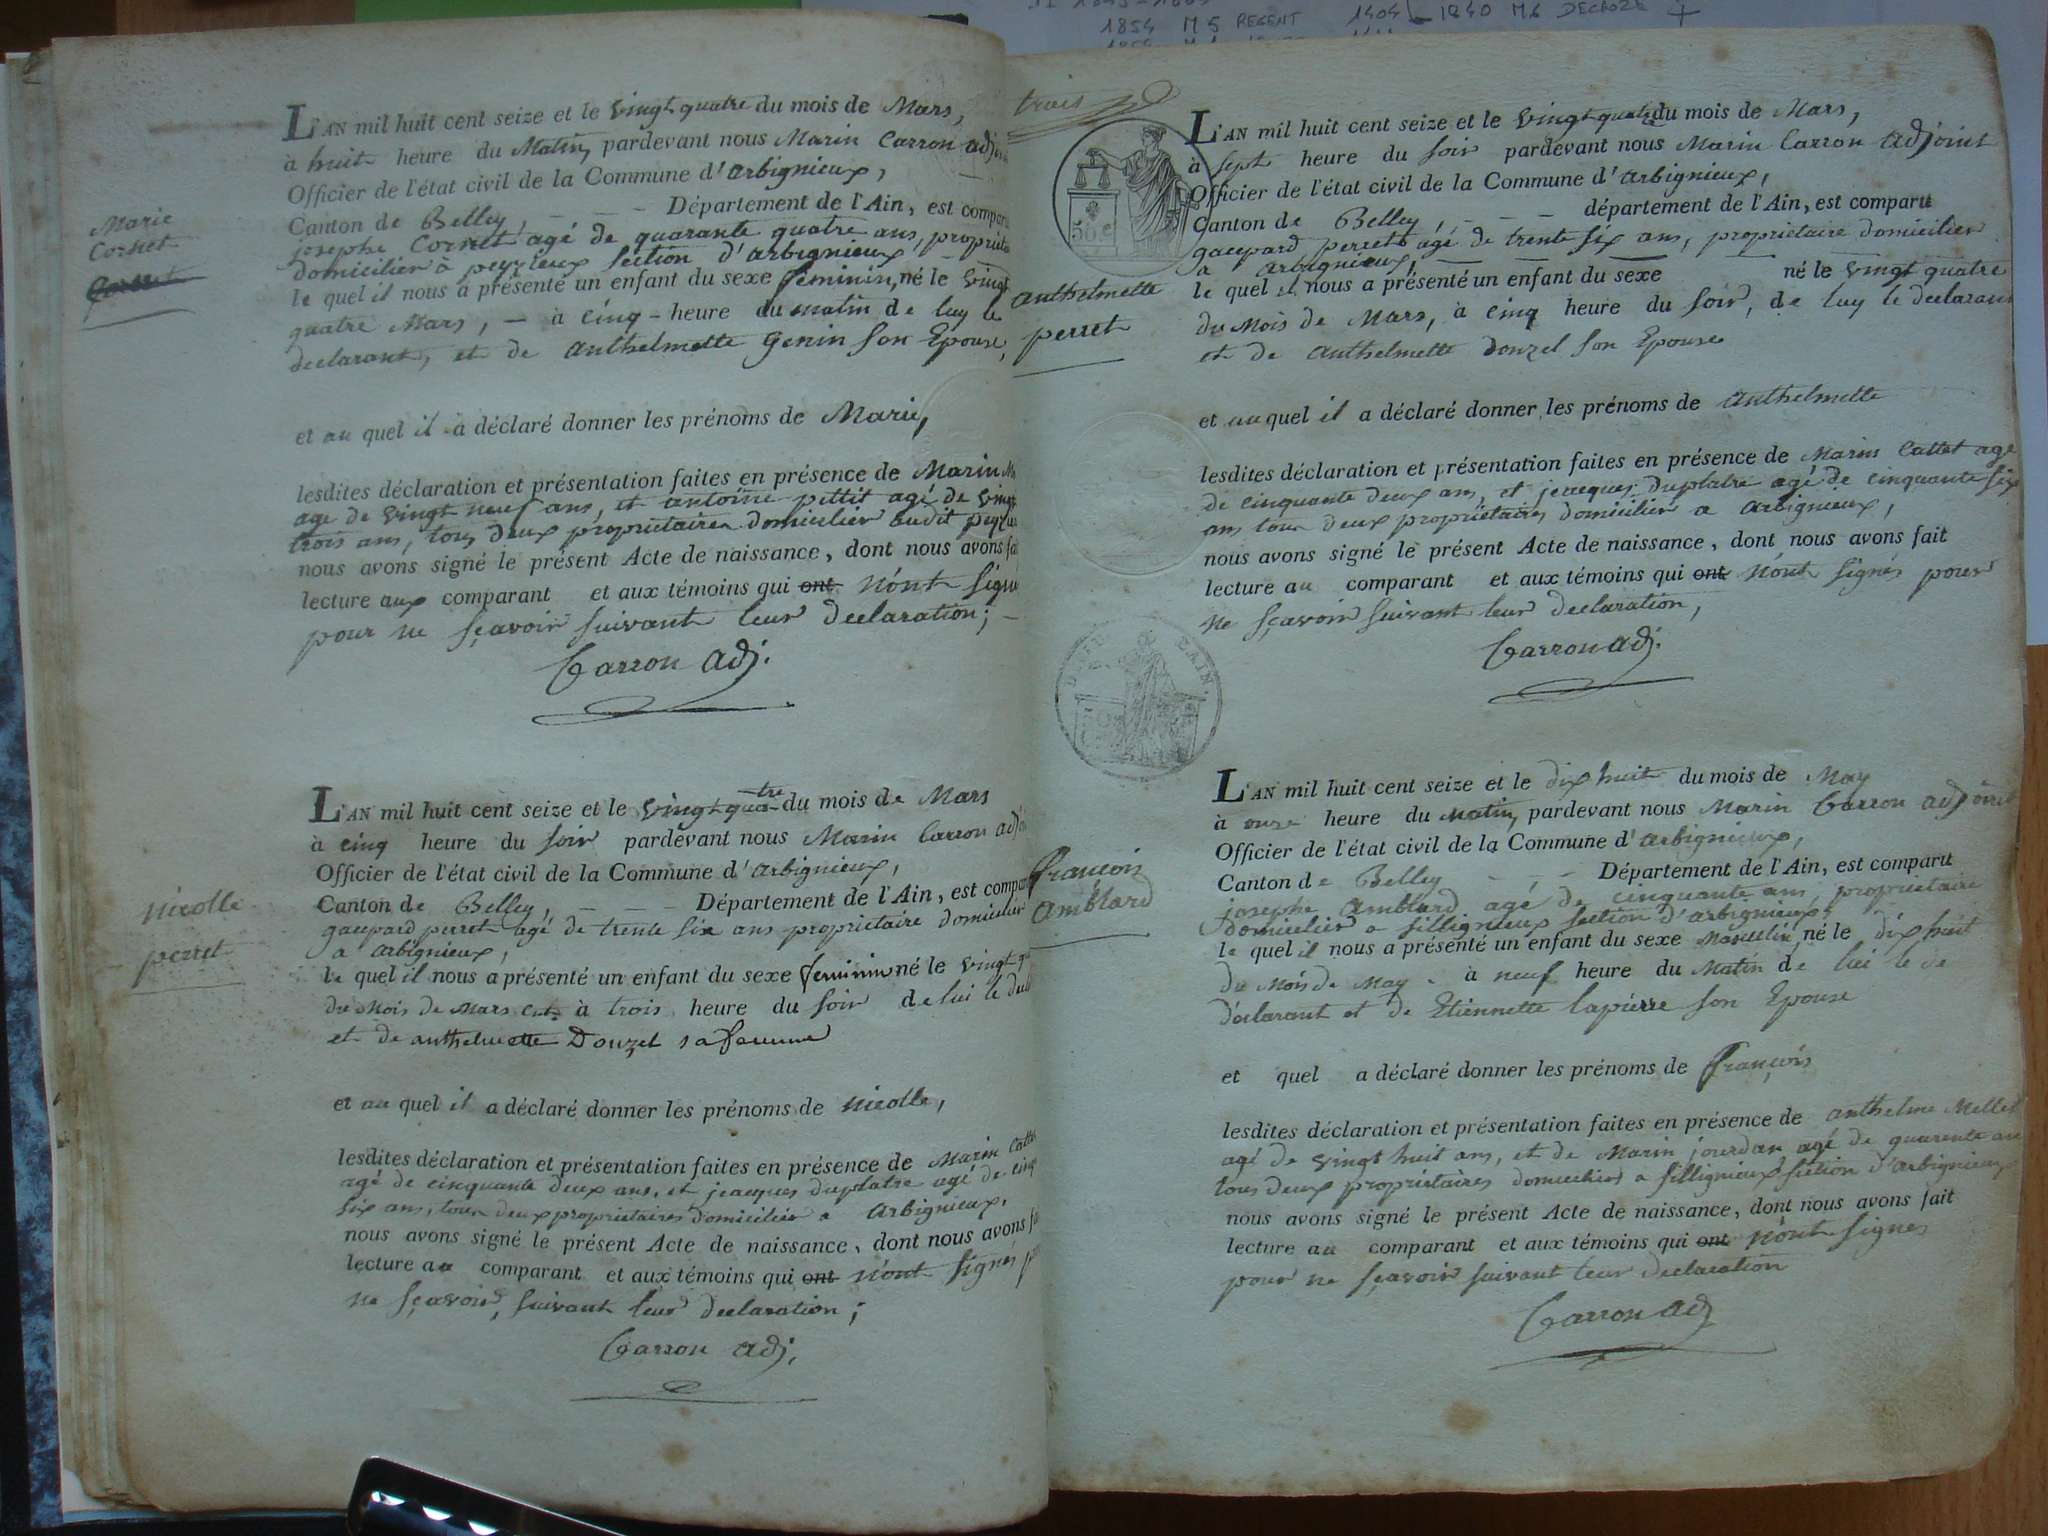 1854 M 5 REGENT 1404 1840 M6 DECROZE
L'AN mil huit cent seize et le vingt quatre du mois de Mars,
à huit heure du Matin, pardevant nous Marin Carron adj
Officier de l'état civil de la Commune d'arbignieux,
Canton de Belley, - - - Département de l'Ain, est compar
josephe Cornet agé de quarante quatre ans, propriéta
domicilier à peyzieux section d'arbignieux
le quel il nous a présenté un enfant du sexe feminin, né le vingt
quatre Mars, - à cinq - heure du matin de luy le
declarant, et de anthelmette Genin son Epouse,
et au quel il a déclaré donner les prénoms de Marie,
lesdites déclaration et présentation faites en présence de Marin
agé de vingt neuf ans, et antoine pettit agé de vingt
trois ans, tous deux propriétaires domicilier audit peyzieu
nous avons signé le présent Acte de naissance, dont nous avons fai
lecture aux comparant et aux témoins qui ont n'ont signé
pour ne sçavoir suivant leur declaration; -
Carron adj.
Marie
Cornet
L'AN mil huit cent seize et le vingt quatre du mois de Mars
à cinq heure du soir pardevant nous Marin Carron adj
Officier de l'état civil de la Commune d'arbignieux,
Canton de Belley, - - Département de l'Ain, est compar
gaspard perret agé de trente six ans propriétaire domicilier
a arbignieux,
le quel il nous a présenté un enfant du sexe feminin né le vingt qu
du Mois de Mars à trois heure du soir de lui le decl
et de anthelmette Douzel sa femme
et au quel il a déclaré donner les prénoms de nicolle,
lesdites déclaration et présentation faites en présence de Marin Cattet
agé de cinquante deux ans, et jeacques duplatre agé de cinq
six ans, tous deux propriétaires domicilier a arbignieux,
nous avons signé le présent Acte de naissance, dont nous avons fai
lecture au comparant et aux témoins qui ont n'ont signés p
ne sçavoir, suivant leur declaration;
Carron adj.
nicolle
perret
trois
50 c
L'AN mil huit cent seize et le vingt quatre du mois de Mars,
à sept heure du soir pardevant nous Marin Carron adjoint
Officier de l'état civil de la Commune d'arbignieux,
Canton de Belley, - - - département de l'Ain, est comparu
gaspard perret agé de trente six ans, propriétaire domicilier
a arbignieux,
le quel il nous a présenté un enfant du sexe né le vingt quatre
du Mois de Mars, à cinq heure du soir, de luy le declarant
et de anthelmette douzel son Epouse
et au quel il a déclaré donner les prénoms de anthelmette
lesdites déclaration et présentation faites en présence de Marin Cattet agé
de cinquante deux ans, et jeacques duplatre agé de cinquante six
ans tous deux propriétaires domicilier a arbignieux,
nous avons signé le présent Acte de naissance, dont nous avons fait
lecture au comparant et aux témoins qui ont n'ont signés pour
ne sçavoir suivant leur declaration,
Carron adj.
anthelmette
perret
AIN.
50
L'AN mil huit cent seize et le dix huit du mois de May
à onze heure du Matin, pardevant nous Marin Carron adjoint
Officier de l'état civil de la Commune d'arbignieux,
Canton de Belley - - - Département de l'Ain, est comparu
josephe Amblard agé de cinquante ans, proprietaire
domicilier a sillignieux section d'arbignieux,
le quel il nous a présenté un enfant du sexe Masculin, né le dix huit
du Mois de May - à neuf heure du Matin de lui le de
d'éclarant et de Etiennette lapierre son Epouse
et quel a déclaré donner les prénoms de françois
lesdites déclaration et présentation faites en présence de anthelme Mellet
agé de vingt huit ans, et de Marin jourdan agé de quarente ans
tous deux propriétaires domicilier a sillignieux section d'arbignieux
nous avons signé le présent Acte de naissance, dont nous avons fait
lecture au comparant et aux témoins qui ont n'ont signés
pour ne sçavoir suivant leur declaration
Carron adj
françois
Amblard